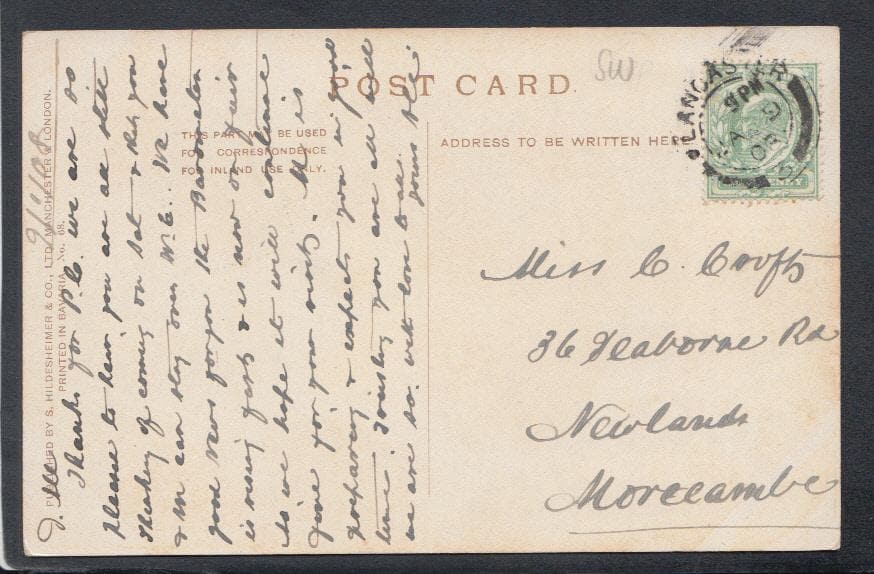 POST CARD.
SW
THIS PART MAY BE USED
FOR CORRESPONDENCE
FOR INLAND USE ONLY.
ADDRESS TO BE WRITTEN HERE
LANCASTER
9 PM
JA 9
08
Miss C. Crofts
36 Seaborne Rd
Newlands
Morecambe
PUBLISHED BY S. HILDESHEIMER & CO., LTD. MANCHESTER & LONDON.
PRINTED IN BAVARIA. No. 68.
9/1/08
Thanks for P.C. we are so
please to hear you are all still
thinking of coming on Sat & that you
& M can stay over W.E.. We have
good news for you the Barometer
is rising fast & is now on fair
so we hope it will continue
fine for your visit. M is
preparing & expects you in good
time. Trusting you are all well
we are so. with love to all
yours